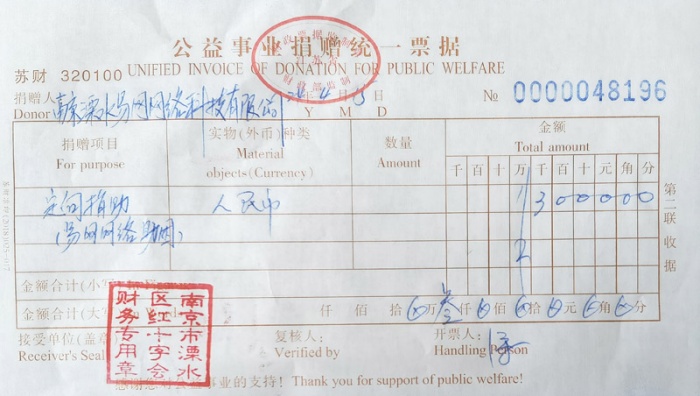 公益事业捐赠统一票据
苏财 320100 UNIFIED INVOICE OF DONATION FOR PUBLIC WELFARE
捐赠人 溧水易网网络科技有限公司 年 4 月 日 № 0000048196
Donor Y M D
捐赠项目 实物(外币)种类 数量 金额
For purpose Material objects (Currency) Amount Total amount
千 百 十 万 千 百 十 元 角 分
定向捐助 人民币 3 0 0 0 0 0 0
(易网网络助困)
金额合计(小写)
金额合计(大写) 仟 佰 拾 万 叁 仟 佰 拾 元 角 分
接受单位(盖章) 复核人: 开票人:
Receiver's Seal Verified by Handling Person
南京市溧水
区红十字会
财务专用章
感谢您对公益事业的支持! Thank you for support of public welfare!
第二联 收据